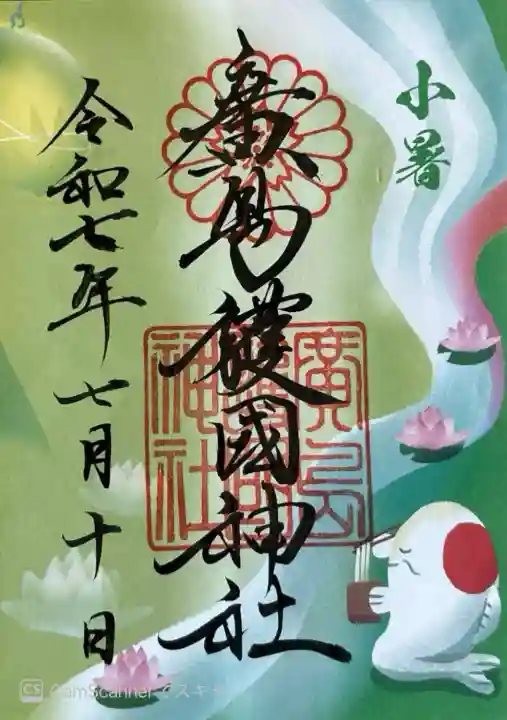 小暑
廣島護國神社
廣島護國神社
令和七年七月十日
CS CamScanner でスキャ